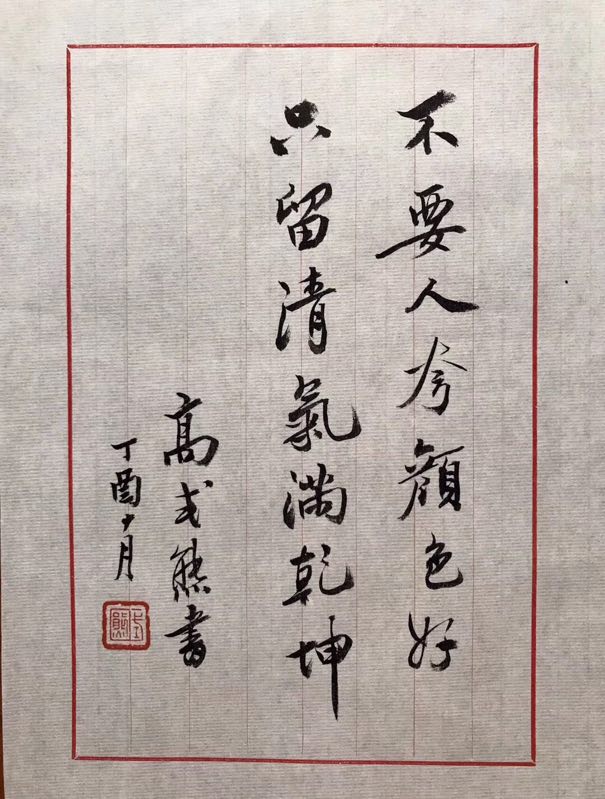 不要人夸顔色好
只留清氣滿乾坤
高式熊書
丁酉十月
式熊